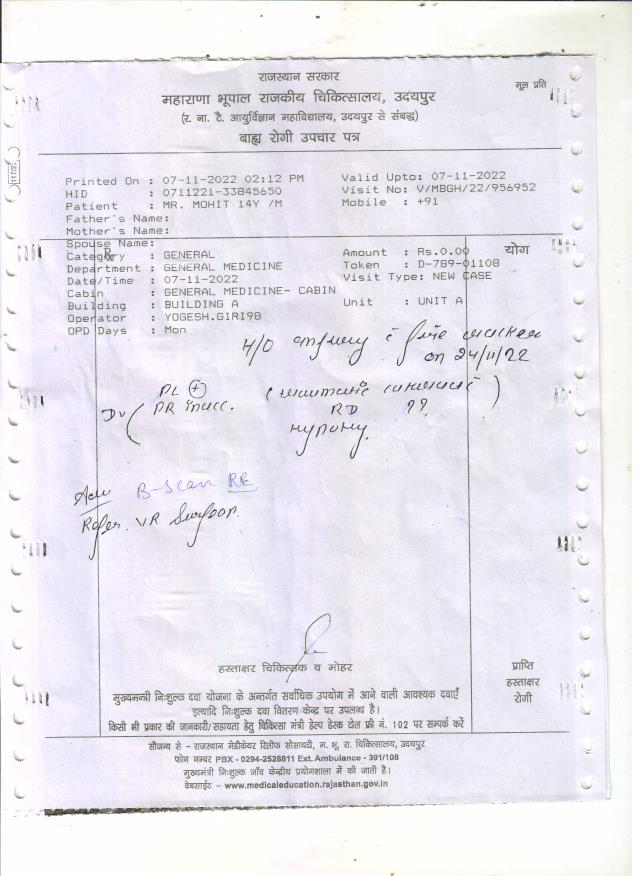 राजस्थान सरकार
मूल प्रति
महाराणा भूपाल राजकीय चिकित्सालय, उदयपुर
(र. ना. टै. आयुर्विज्ञान महाविद्यालय, उदयपुर से संबद्ध)
बाह्य रोगी उपचार पत्र
Printed On : 07-11-2022 02:12 PM Valid Upto: 07-11-2022
HID : 0711221-33845650 Visit No: V/MBGH/22/956952
Patient : MR. MOHIT 14Y /M Mobile : +91
Father's Name:
Mother's Name:
Spouse Name:
Category : GENERAL Amount : Rs.0.00 योग
Department : GENERAL MEDICINE Token : D-789-01108
Date/Time : 07-11-2022 Visit Type: NEW CASE
Cabin : GENERAL MEDICINE- CABIN
Building : BUILDING A Unit : UNIT A
Operator : YOGESH.GIRI9B
OPD Days : Mon
H/O injury c fire cracker
on 24/11/22
PL (+) (traumatic cataract)
PR inacc. RD ??
Adv B-Scan RE
Refer VR Surgeon.
हस्ताक्षर चिकित्सक व मोहर
प्राप्ति
हस्ताक्षर
रोगी
मुख्यमन्त्री निःशुल्क दवा योजना के अन्तर्गत सर्वाधिक उपयोग में आने वाली आवश्यक दवाएँ
इत्यादि निःशुल्क दवा वितरण केन्द्र पर उपलब्ध है।
किसी भी प्रकार की जानकारी/सहायता हेतु चिकित्सा मंत्री हेल्प डेस्क टोल फ्री नं. 102 पर सम्पर्क करें
सौजन्य से - राजस्थान मेडीकेयर रिलीफ सोसायटी, म. भू. रा. चिकित्सालय, उदयपुर
फोन नम्बर PBX - 0294-2528811 Ext. Ambulance - 391/108
मुख्यमंत्री निःशुल्क जाँच केन्द्रीय प्रयोगशाला में की जाती है।
वेबसाईट - www.medicaleducation.rajasthan.gov.in